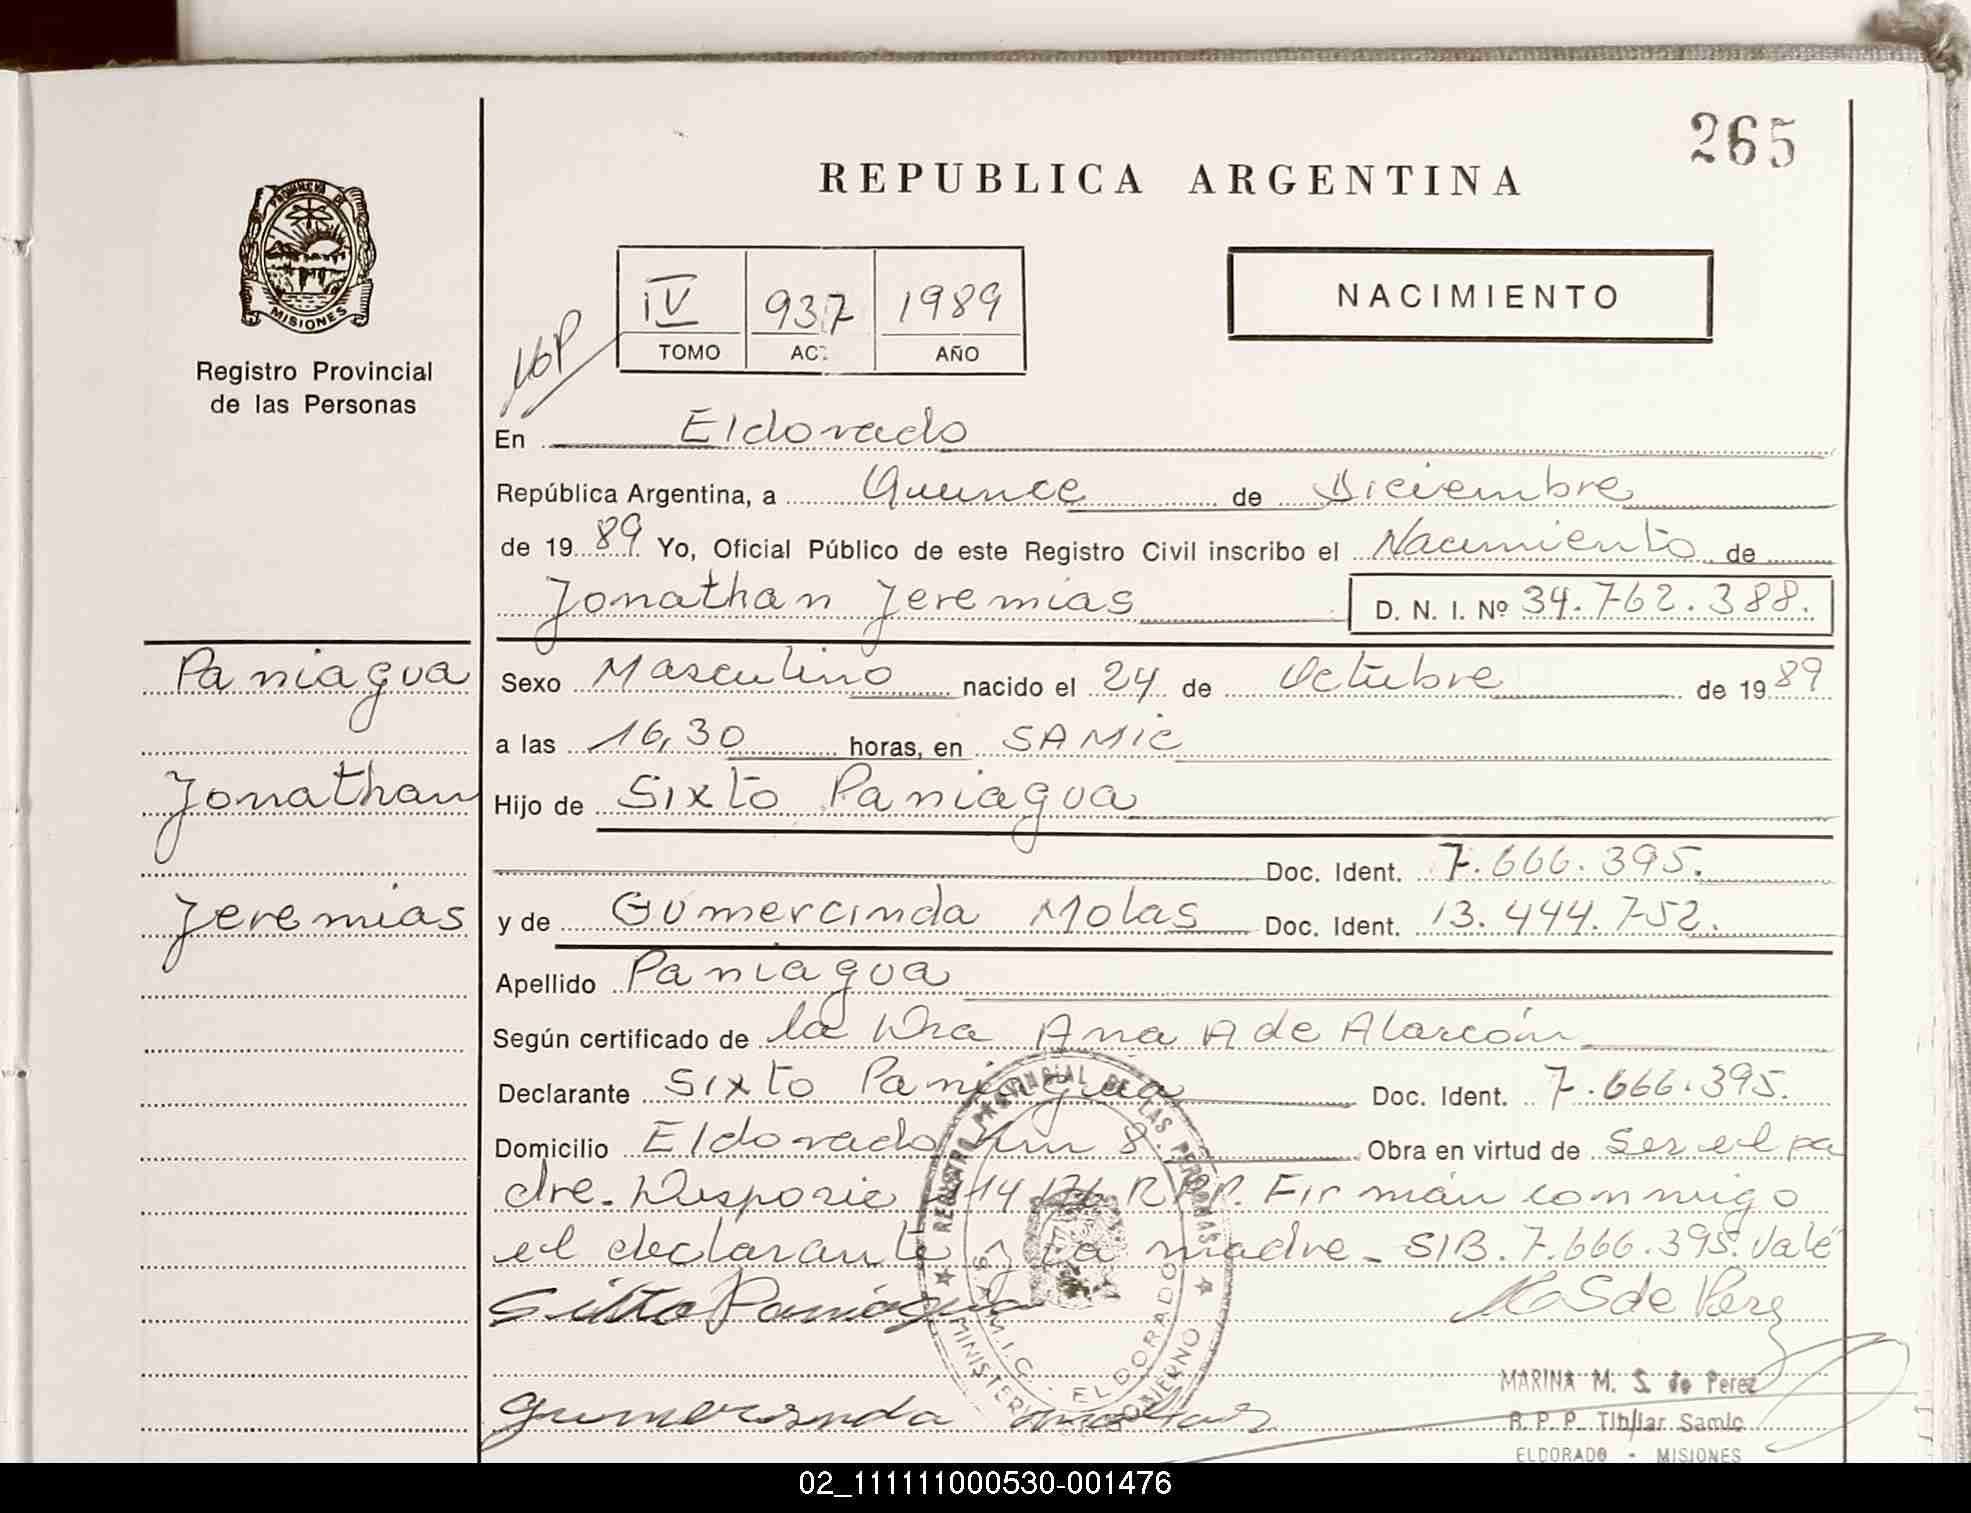 265
REPUBLICA ARGENTINA
PROVINCIA DE
MISIONES
Registro Provincial
de las Personas
IV 937 1989
TOMO AC AÑO
NACIMIENTO
En Eldorado
República Argentina, a Quince de Diciembre
de 1989 Yo, Oficial Público de este Registro Civil inscribo el Nacimiento de
Jonathan Jeremias D. N. I. Nº 34.762.388.
Paniagua
Jonathan
Jeremias
Sexo Masculino nacido el 24 de Octubre de 1989
a las 16,30 horas, en SAMIC
Hijo de Sixto Paniagua
Doc. Ident. 7.666.395.
y de Gumercinda Molas Doc. Ident. 13.444.752.
Apellido Paniagua
Según certificado de la Dra Ana A de Alarcón
Declarante Sixto Paniagua Doc. Ident. 7.666.395.
Domicilio Eldorado Km 8. Obra en virtud de ser el pa
dre. Disposic 14 R.P.P. Firmán conmigo
el declarante y la madre - S/B. 7.666.395. Vale
Sixto Paniagua M S de Perez
Gumercinda Molas
REGISTRO PROVINCIAL DE LAS PERSONAS
S.A.M.I.C. - ELDORADO
MINISTERIO GOBIERNO
MARINA M. S. de Perez
R. P. P. Titular Samic
ELDORADO - MISIONES
02_111111000530-001476